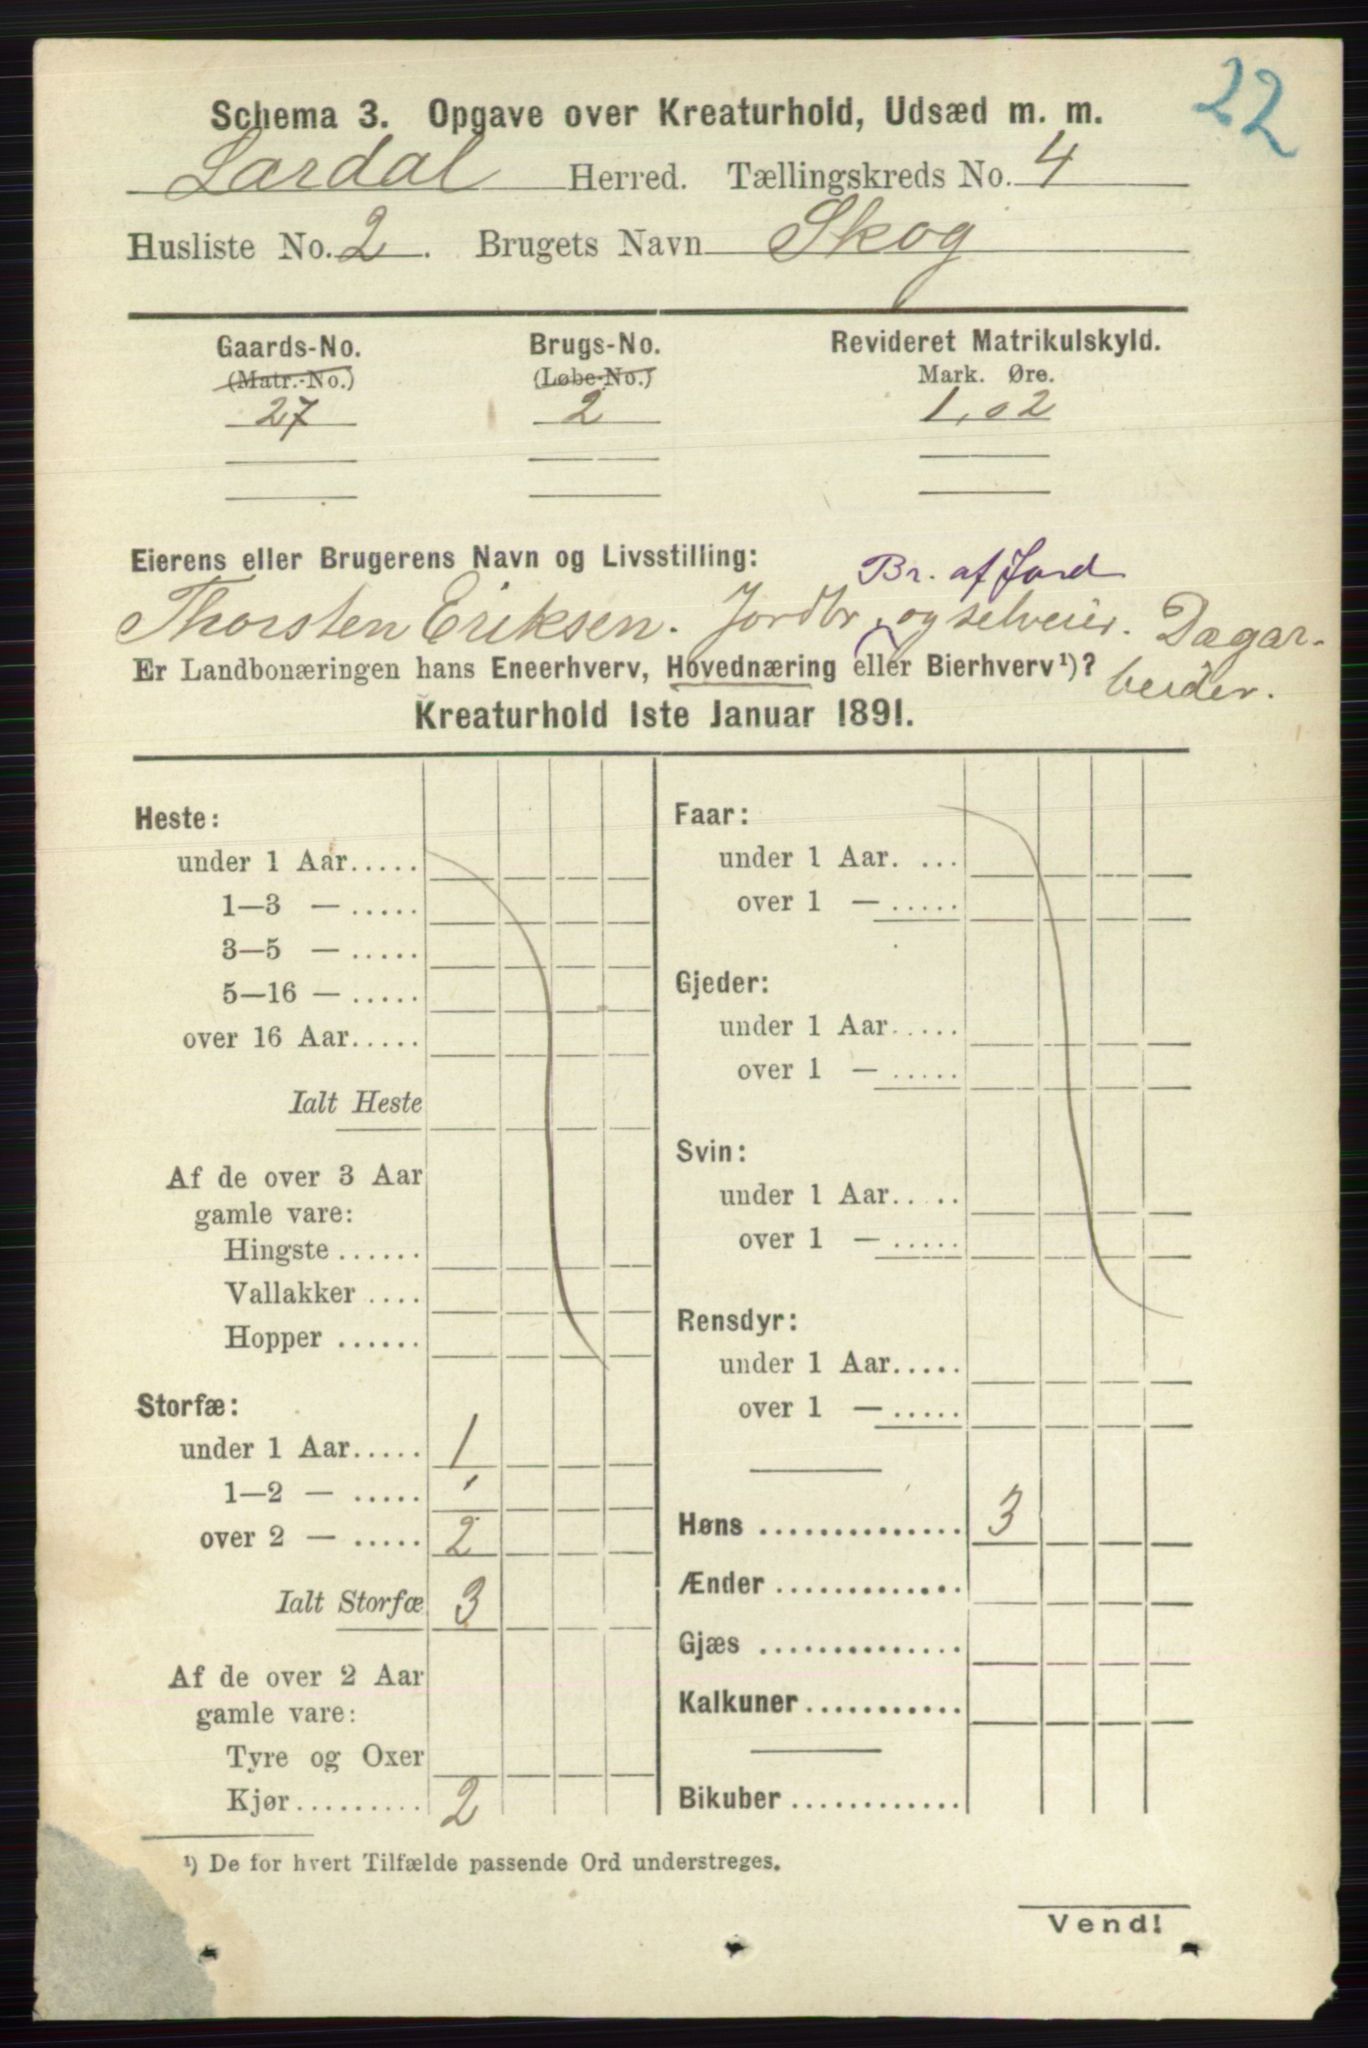 22
Schema 3. Opgave over Kreaturhold, Udsæd m. m.
Lardal Herred. Tællingskreds No. 4
Husliste No. 2. Brugets Navn Skog
Gaards-No. Brugs-No. Revideret Matrikulskyld.
(Matr.-No.) (Løbe-No.) Mark. Øre.
27 2 1,02
Eierens eller Brugerens Navn og Livsstilling:
Br. af Jord
Thorsten Eriksen. Jordbr. og selveier. Dagar-
beider.
Er Landbonæringen hans Eneerhverv, Hovednæring eller Bierhverv¹)?
Kreaturhold 1ste Januar 1891.
Heste:
under 1 Aar.....
1—3 — .....
3—5 — .....
5—16 — .....
over 16 Aar.....
Ialt Heste
Af de over 3 Aar
gamle vare:
Hingste ......
Vallakker ....
Hopper ......
Storfæ:
under 1 Aar..... 1
1—2 — ..... '
over 2 — ..... 2
Ialt Storfæ 3
Af de over 2 Aar
gamle vare:
Tyre og Oxer
Kjør......... 2
Faar:
under 1 Aar. ...
over 1 — .....
Gjeder:
under 1 Aar.....
over 1 — .....
Svin:
under 1 Aar.....
over 1 — .....
Rensdyr:
under 1 Aar.....
over 1 — .....
Høns .............. 3
Ænder .............
Gjæs ..............
Kalkuner ...........
Bikuber ............
¹) De for hvert Tilfælde passende Ord understreges.
Vend!